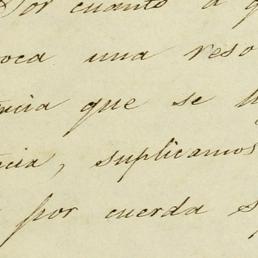 Por cuanto a q
oca una reso
ncia que se h
cia, suplicamos
por cuerda s